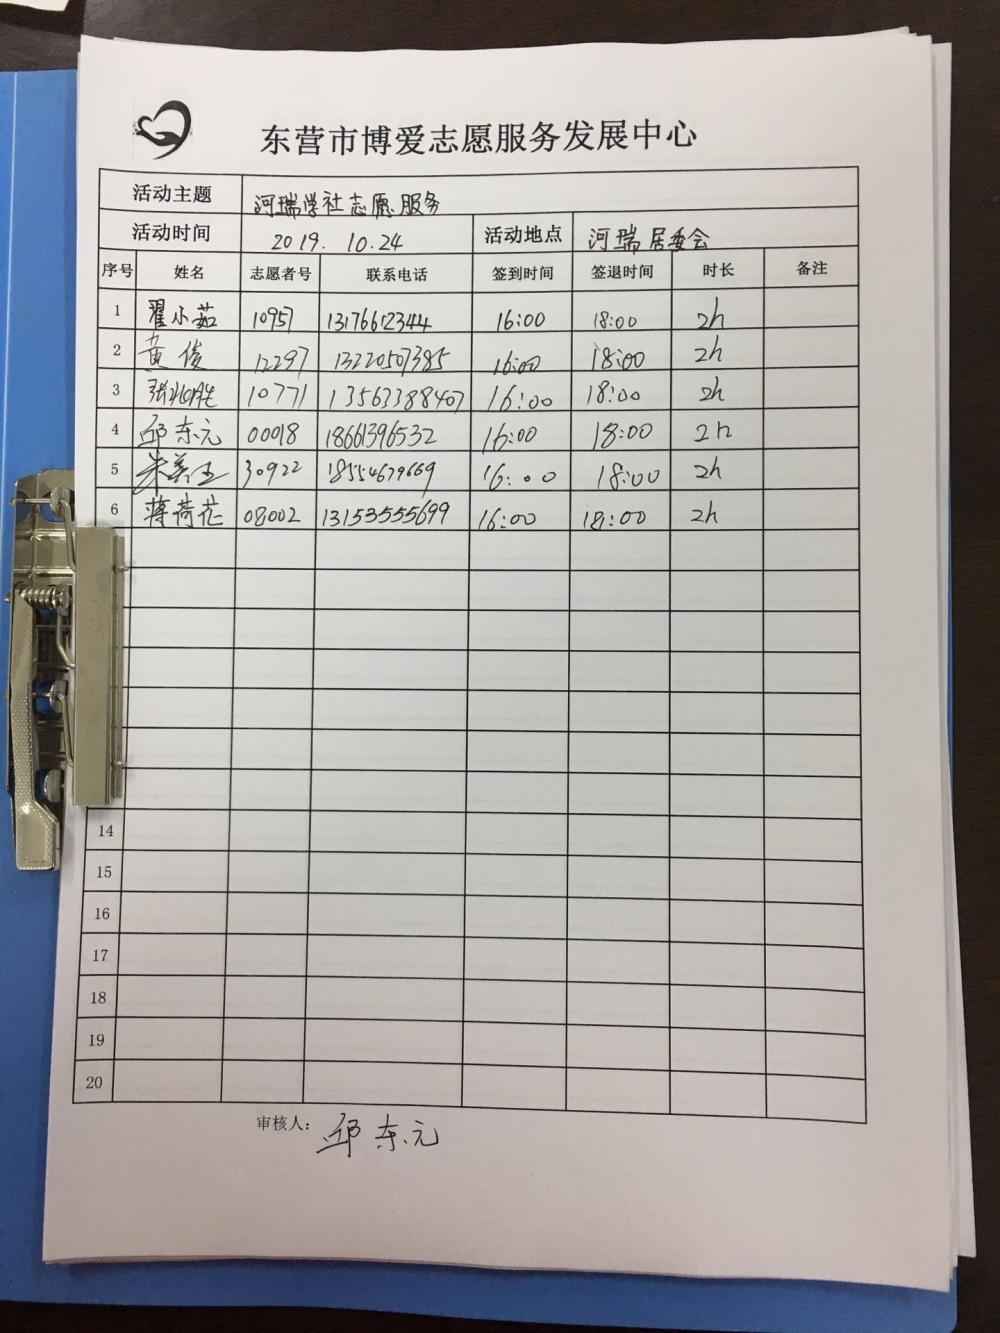 东营市博爱志愿服务发展中心
活动主题 河瑞学社志愿服务
活动时间 2019. 10.24 活动地点 河瑞居委会
序号 姓名 志愿者号 联系电话 签到时间 签退时间 时长 备注
1 翟小茹 10957 13176612344 16:00 18:00 2h
2 黄俊 12297 13220507385 16:00 18:00 2h
3 10771 13563388407 16:00 18:00 2h
4 邱东元 00018 18661396532 16:00 18:00 2h
5 30922 18554679669 16:00 18:00 2h
6 蒋荷花 08002 13153555699 16:00 18:00 2h
14
15
16
17
18
19
20
审核人: 邱东元